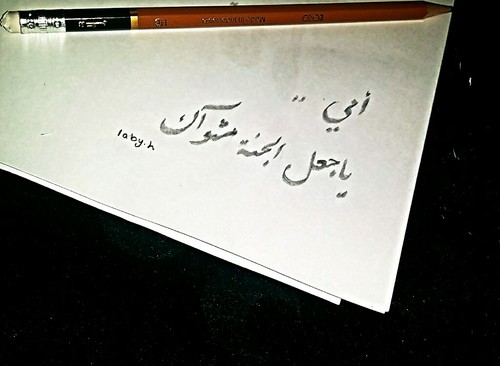 أمي ..
ياجعل الجنة مثوآك
laby.h
HB